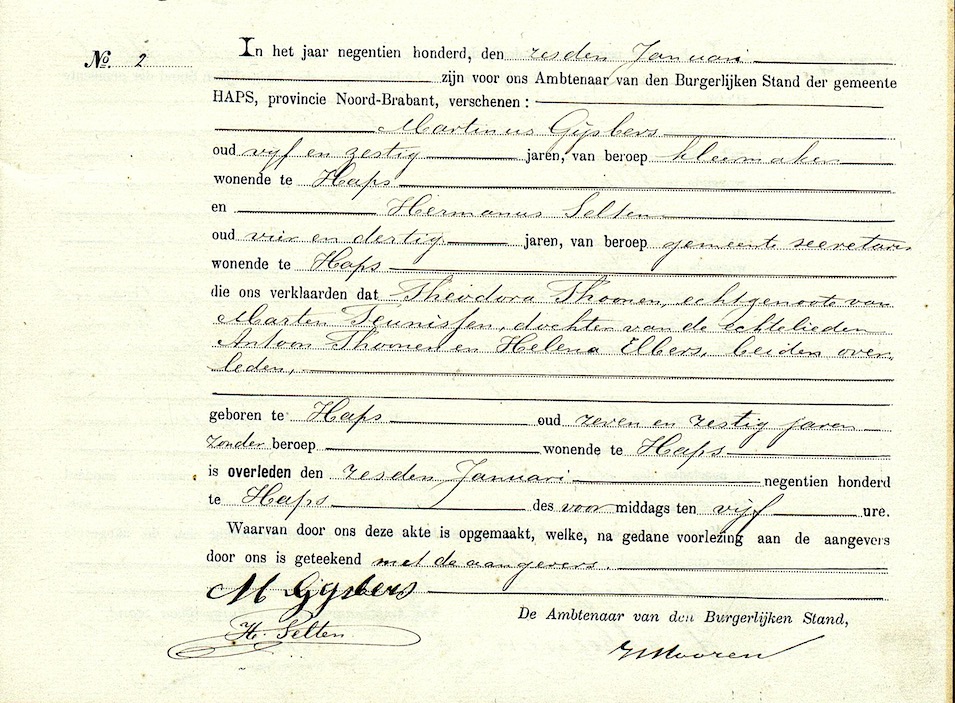 No. 2
In het jaar negentien honderd, den zesden Januari
zijn voor ons Ambtenaar van den Burgerlijken Stand der gemeente
HAPS, provincie Noord-Brabant, verschenen:
Martinus Gijsbers
oud vijf en zestig jaren, van beroep kleermaker
wonende te Haps
en Hermanus Selten
oud vier en dertig jaren, van beroep gemeente secretaris
wonende te Haps
die ons verklaarden dat Theodora Thoonen, echtgenoote van
Marten Teunissen, dochter van de echtelieden
Antoon Thoonen en Helena Elbers, beiden over-
leden,
geboren te Haps oud zeven en zestig jaren
zonder beroep wonende te Haps
is overleden den zesden Januari negentien honderd
te Haps des voor middags ten vijf ure.
Waarvan door ons deze akte is opgemaakt, welke, na gedane voorlezing aan de aangevers
door ons is geteekend met de aangevers.
M Gijsbers
H. Selten
De Ambtenaar van den Burgerlijken Stand,
Mooren